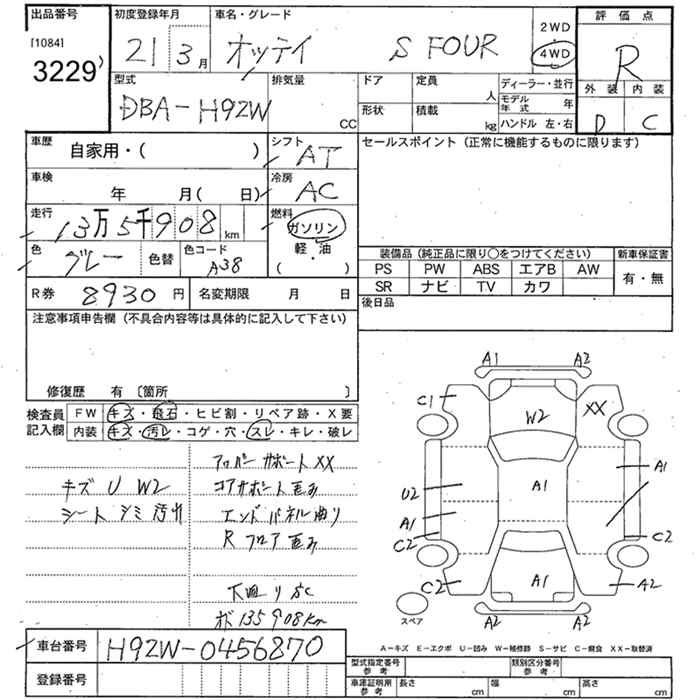 出品番号
[1084]
3229
初度登録年月
21 3月
車名・グレード
オッティ S FOUR
2WD
4WD
評価点
R
外装 内装
D C
型式
DBA-H92W
排気量
CC
ドア
形状
定員
人
積載
kg
ディーラー・並行
モデル年式 年
ハンドル 左・右
車歴
自家用・( )
シフト
AT
セールスポイント (正常に機能するものに限ります)
車検
年 月(日)
冷房
AC
走行
13万5千908km
燃料
ガソリン
軽・油
( )
色
グレー
色替
色コード
A38
装備品 (純正品に限り○をつけてください)
新車保証書
PS PW ABS エアB AW
SR ナビ TV カワ
有・無
R券 8930円
名変期限 月 日
後日品
注意事項申告欄 (不具合内容等は具体的に記入して下さい)
修復歴 有 〔箇所 〕
検査員記入欄
FW キズ・飛石・ヒビ割・リペア跡・X要
内装 キズ・汚レ・コゲ・穴・スレ・キレ・破レ
キズ U W2
シート シミ 汚れ
アッパーサポート XX
コアサポート 歪み
エンドパネル 曲り
R フロア 歪み
下廻り SC
ボ 135908km
A1 A2
C1 XX
W2
A1
A1
U2
A1
C2 C2
C2 A1 A2
A2 A2
スペア
A-キズ E-エクボ U-凹み W-補修跡 S-サビ C-腐食 XX-取替済
車台番号 H92W-0456870
登録番号
型式指定番号 参考
類別区分番号 参考
車庫証明用 参考
長さ cm
幅 cm
高さ cm